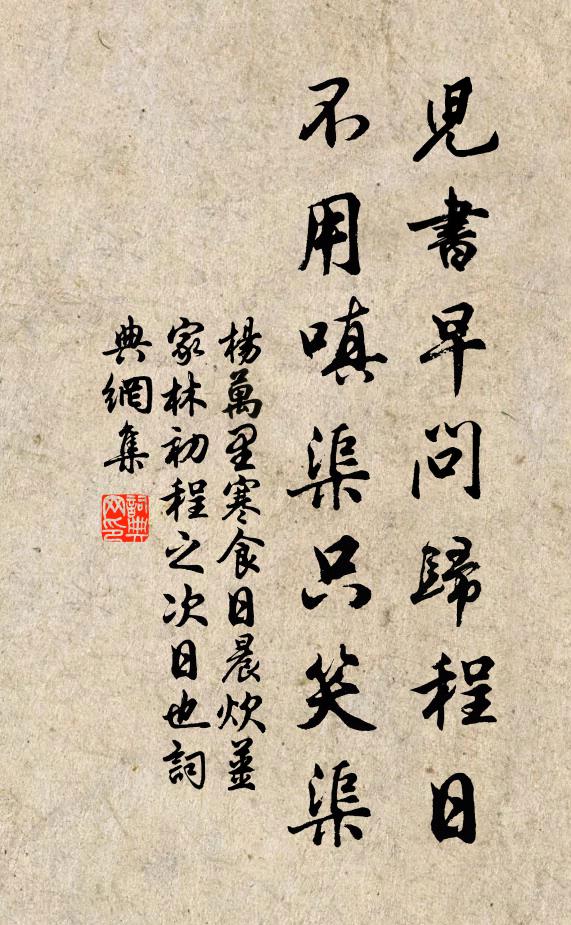 兒書早問歸程日
不用嗔渠只笑渠
楊萬里寒食日晨炊薑
家林初程之次日也詞
典網集
詞典
网印